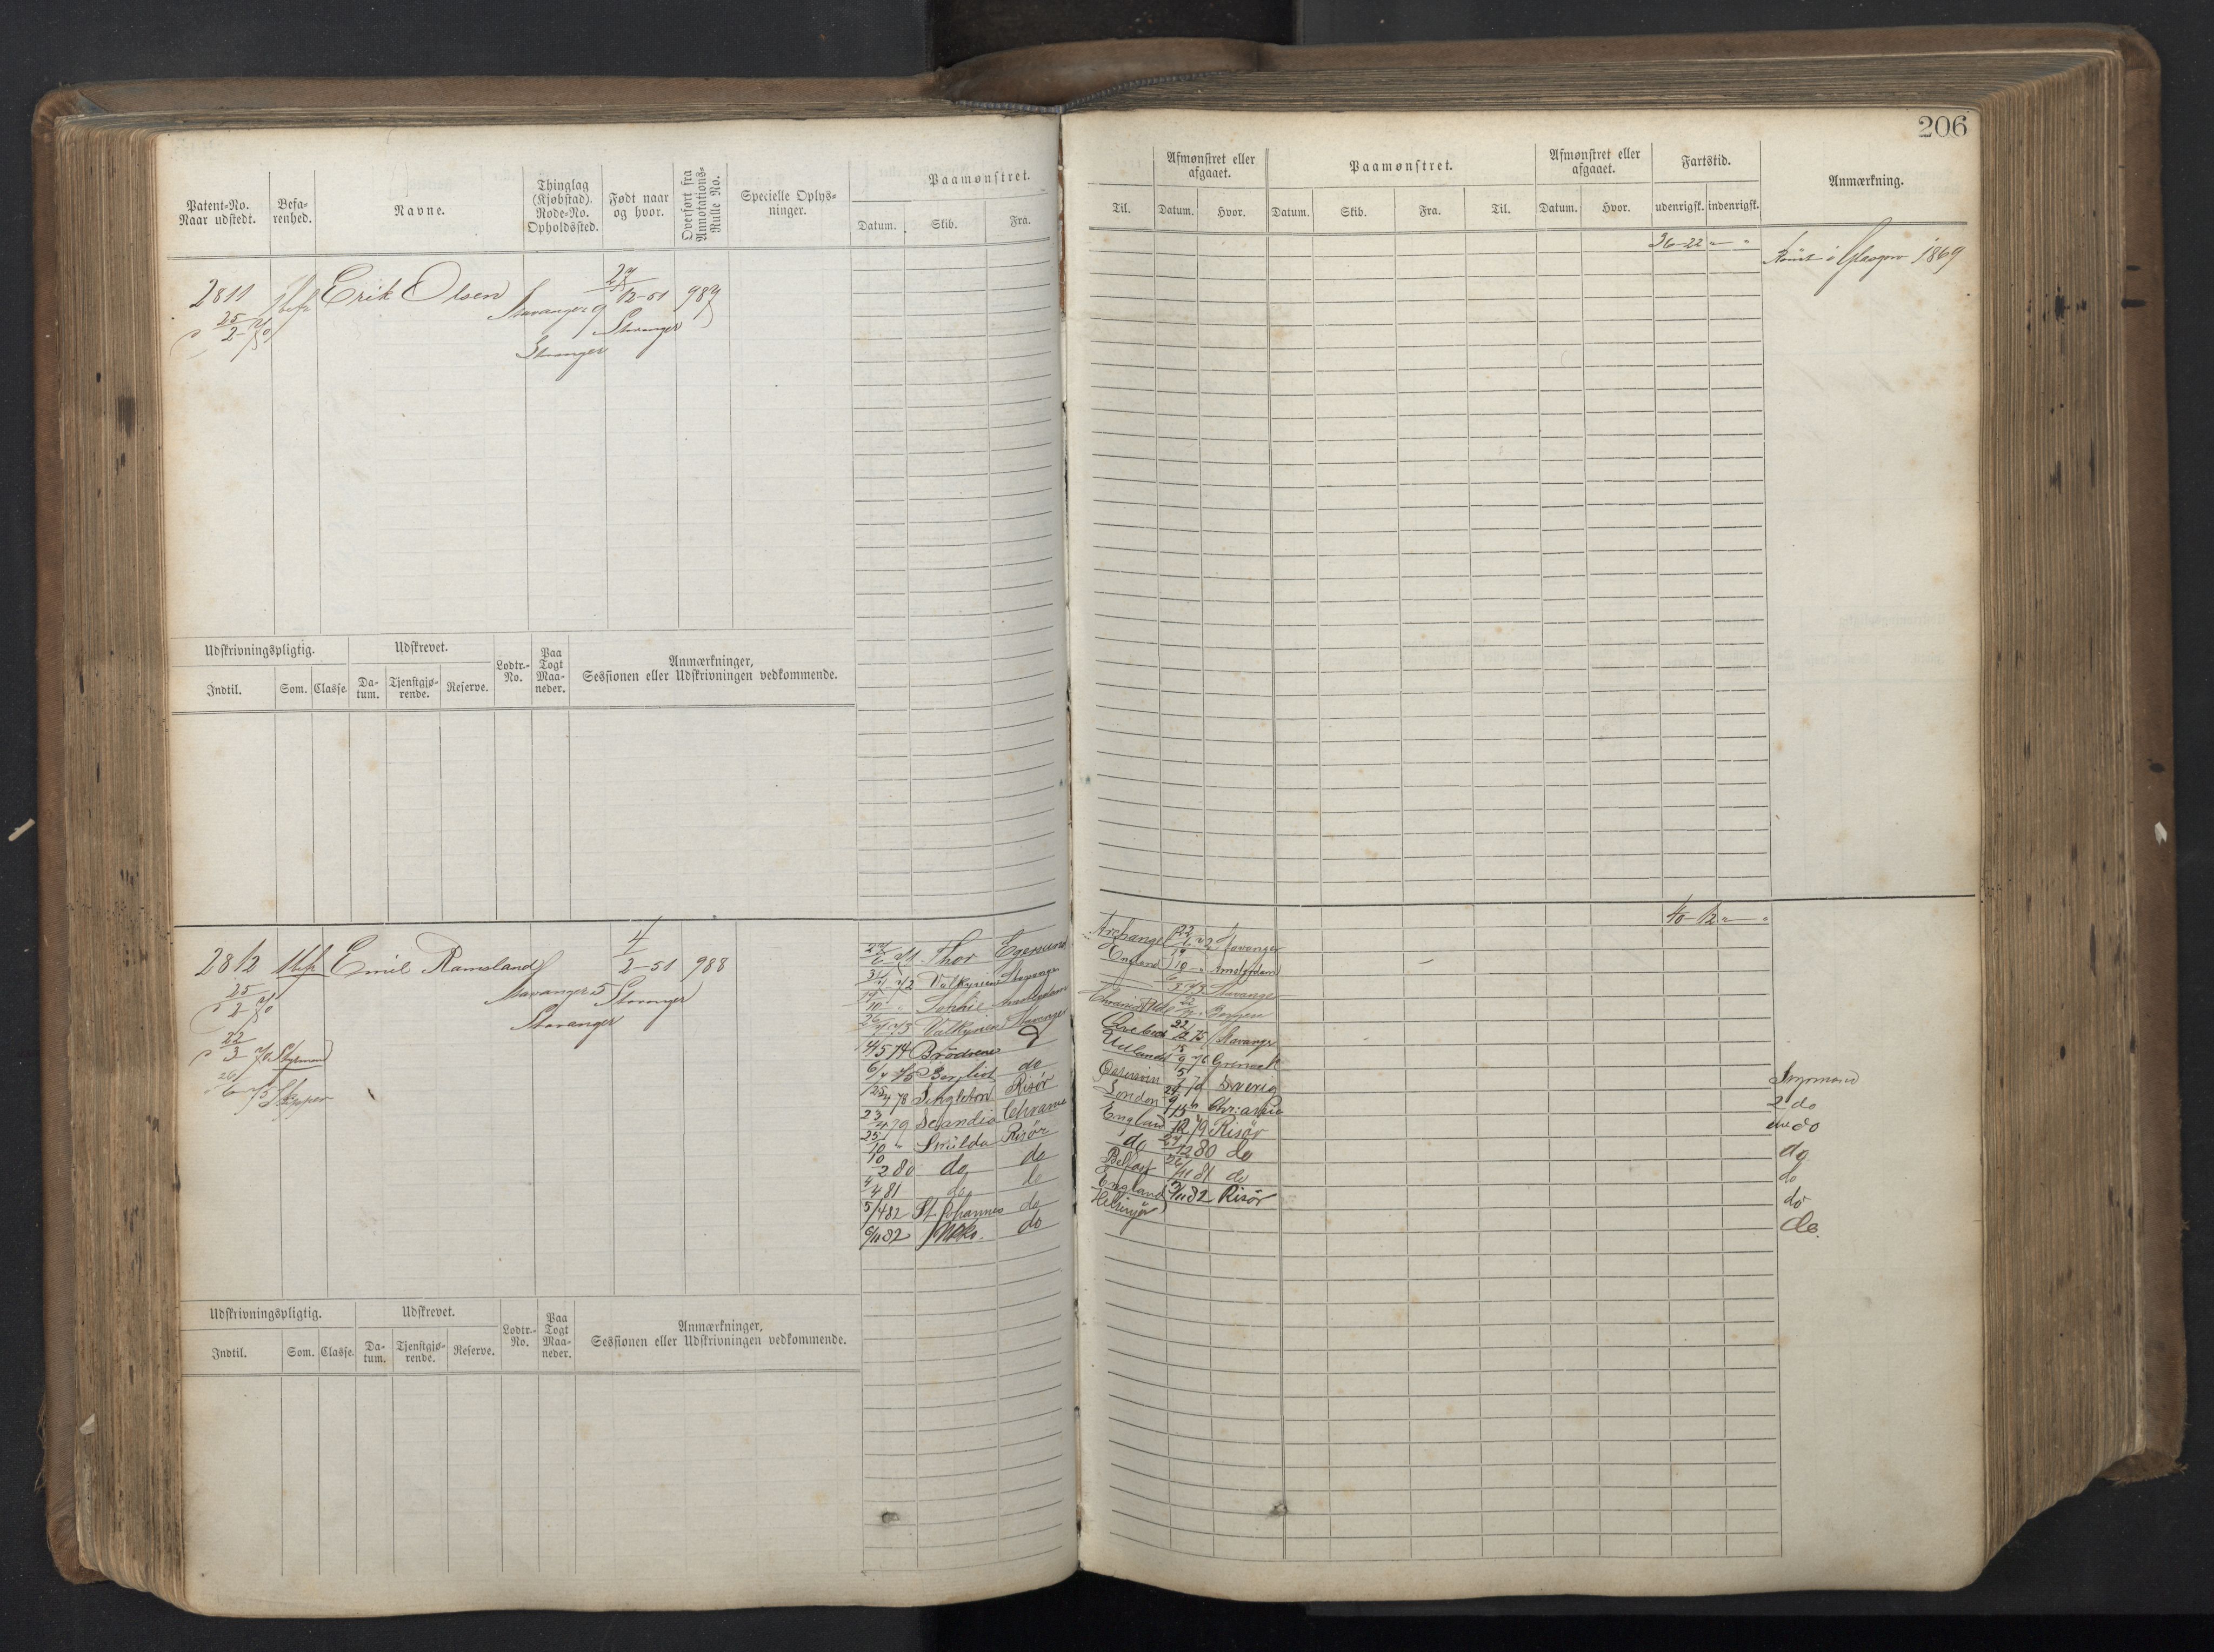 206
Patent-No. Naar udstedt.
Befarenhed.
Navne.
Thinglag (Kjøbstad). Rode-No. Opholdssted.
Født naar og hvor.
Overført fra Annotations-Rulle No.
Specielle Oplysninger.
Paamønstret.
Datum. Skib. Fra.
Til.
Afmønstret eller afgaaet.
Datum. Hvor.
Paamønstret.
Datum. Skib. Fra. Til.
Afmønstret eller afgaaet.
Datum. Hvor.
Fartstid.
udenrigsk. indenrigsk.
Anmærkning.
2811 Erik Olsen 27/12-51 987
25/2-70
Stavanger 9 Stavanger
Stavanger
36-22 " "
Rømt i Glasgow 1869
Udskrivningspligtig.
Indtil. Som. Classe.
Udskrevet.
Datum. Tjenstgjørende. Reserve.
Lodtr.-No.
Paa Togt Maaneder.
Anmærkninger, Sessionen eller Udskrivningen vedkommende.
2812 Emil Ramsland 4/2-51 988
25/2-70
Stavanger 5 Stavanger
Stavanger
Styrmand
26/6 75 Skipper
40-12 " "
Thor Egersund Archangel Stavanger
72 Valkyrien Stavanger England Amsterdam
73 Stavanger
73 Valkyrien Stavanger Bergen
74 Brødrene 75 Stavanger
6/4 75 do Udlandet 76
25/4 78 Singleton Risør Sverig
23/4 79 Scandia London
25/10 " Risør England 79 Risør
10/2 80 do do do 80 do
4/4 81 do do Belfast 81 do
5/4 82 St. Johannes do England 82 Risør
6/11 82 do Helsingør
Styrmand
2 do
do
do
do
do
do.
Udskrivningspligtig.
Indtil. Som. Classe.
Udskrevet.
Datum. Tjenstgjørende. Reserve.
Lodtr.-No.
Paa Togt Maaneder.
Anmærkninger, Sessionen eller Udskrivningen vedkommende.